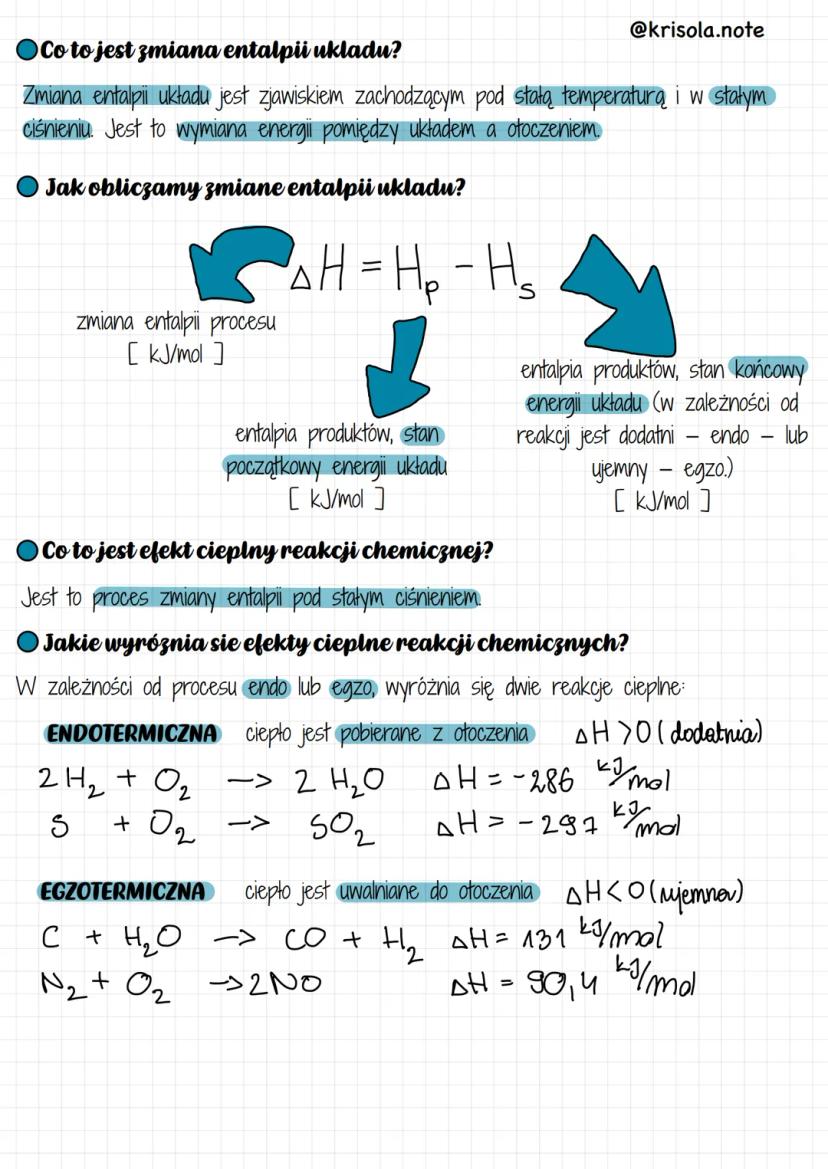 @krisola.note
Co to jest zmiana entalpii ukladu?
Zmiana entalpii układu jest zjawiskiem zachodzącym pod stałą temperaturą i w stałym
ciśnieniu. Jest to wymiana energii pomiędzy układem a otoczeniem.
Jak obliczamy zmiane entalpii ukladu?
ΔH = Hp - Hs
zmiana entalpii procesu
[ kJ/mol ]
entalpia produktów, stan
początkowy energii układu
[ kJ/mol ]
entalpia produktów, stan końcowy
energii układu (w zależności od
reakcji jest dodatni – endo – lub
ujemny – egzo.)
[ kJ/mol ]
Co to jest efekt cieplny reakcji chemicznej?
Jest to proces zmiany entalpii pod stałym ciśnieniem.
Jakie wyróżnia sie efekty cieplne reakcji chemicznych?
W zależności od procesu endo lub egzo, wyróżnia się dwie reakcje cieplne:
ENDOTERMICZNA ciepło jest pobierane z otoczenia ΔH >0 (dodatnia)
2 H₂ + O₂ –> 2 H₂O ΔH = -286 kJ/mol
S + O₂ –> SO₂ ΔH = -297 kJ/mol
EGZOTERMICZNA ciepło jest uwalniane do otoczenia ΔH<0 (ujemna)
C + H₂O –> CO + H₂ ΔH = 131 kJ/mol
N₂ + O₂ –> 2NO ΔH = 90,4 kJ/mol